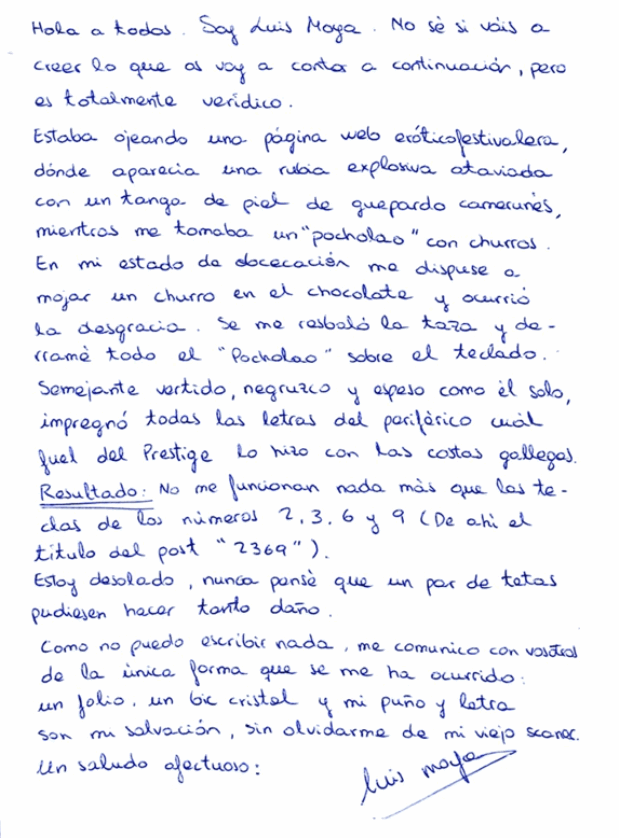 Hola a todos. Soy Luis Moya. No sè si vàis a
creer lo que os voy a contar a continuaciòn, pero
es totalmente verìdico.
Estaba ojeando una pàgina web eròticofestivalera,
dònde aparecia una rubia explosiva ataviada
con un tanga de piel de guepardo camerunès,
mientras me tomaba un "pocholao" con churros.
En mi estado de obcecaciòn me dispuse a
mojar un churro en el chocolate y ocurriò
la desgracia. Se me resbalò la taza y de-
rramè todo el "Pocholao" sobre el teclado.
Semejante vertido, negruzco y espeso como èl solo,
impregnó todas las letras del perifèrico cuàl
fuel del Prestige lo hizo con las costas gallegas.
Resultado: No me funcionan nada màs que las te-
clas de los nùmeros 2, 3, 6 y 9 (De ahì el
tìtulo del post "2369").
Estoy desolado, nunca pensè que un par de tetas
pudiesen hacer tanto daño.
Como no puedo escribir nada, me comunico con vosotros
de la ùnica forma que se me ha ocurrido:
un folio, un bic cristal y mi puño y letra
son mi salvaciòn, sin olvidarme de mi viejo scaner.
Un saludo afectuoso:
luis moya